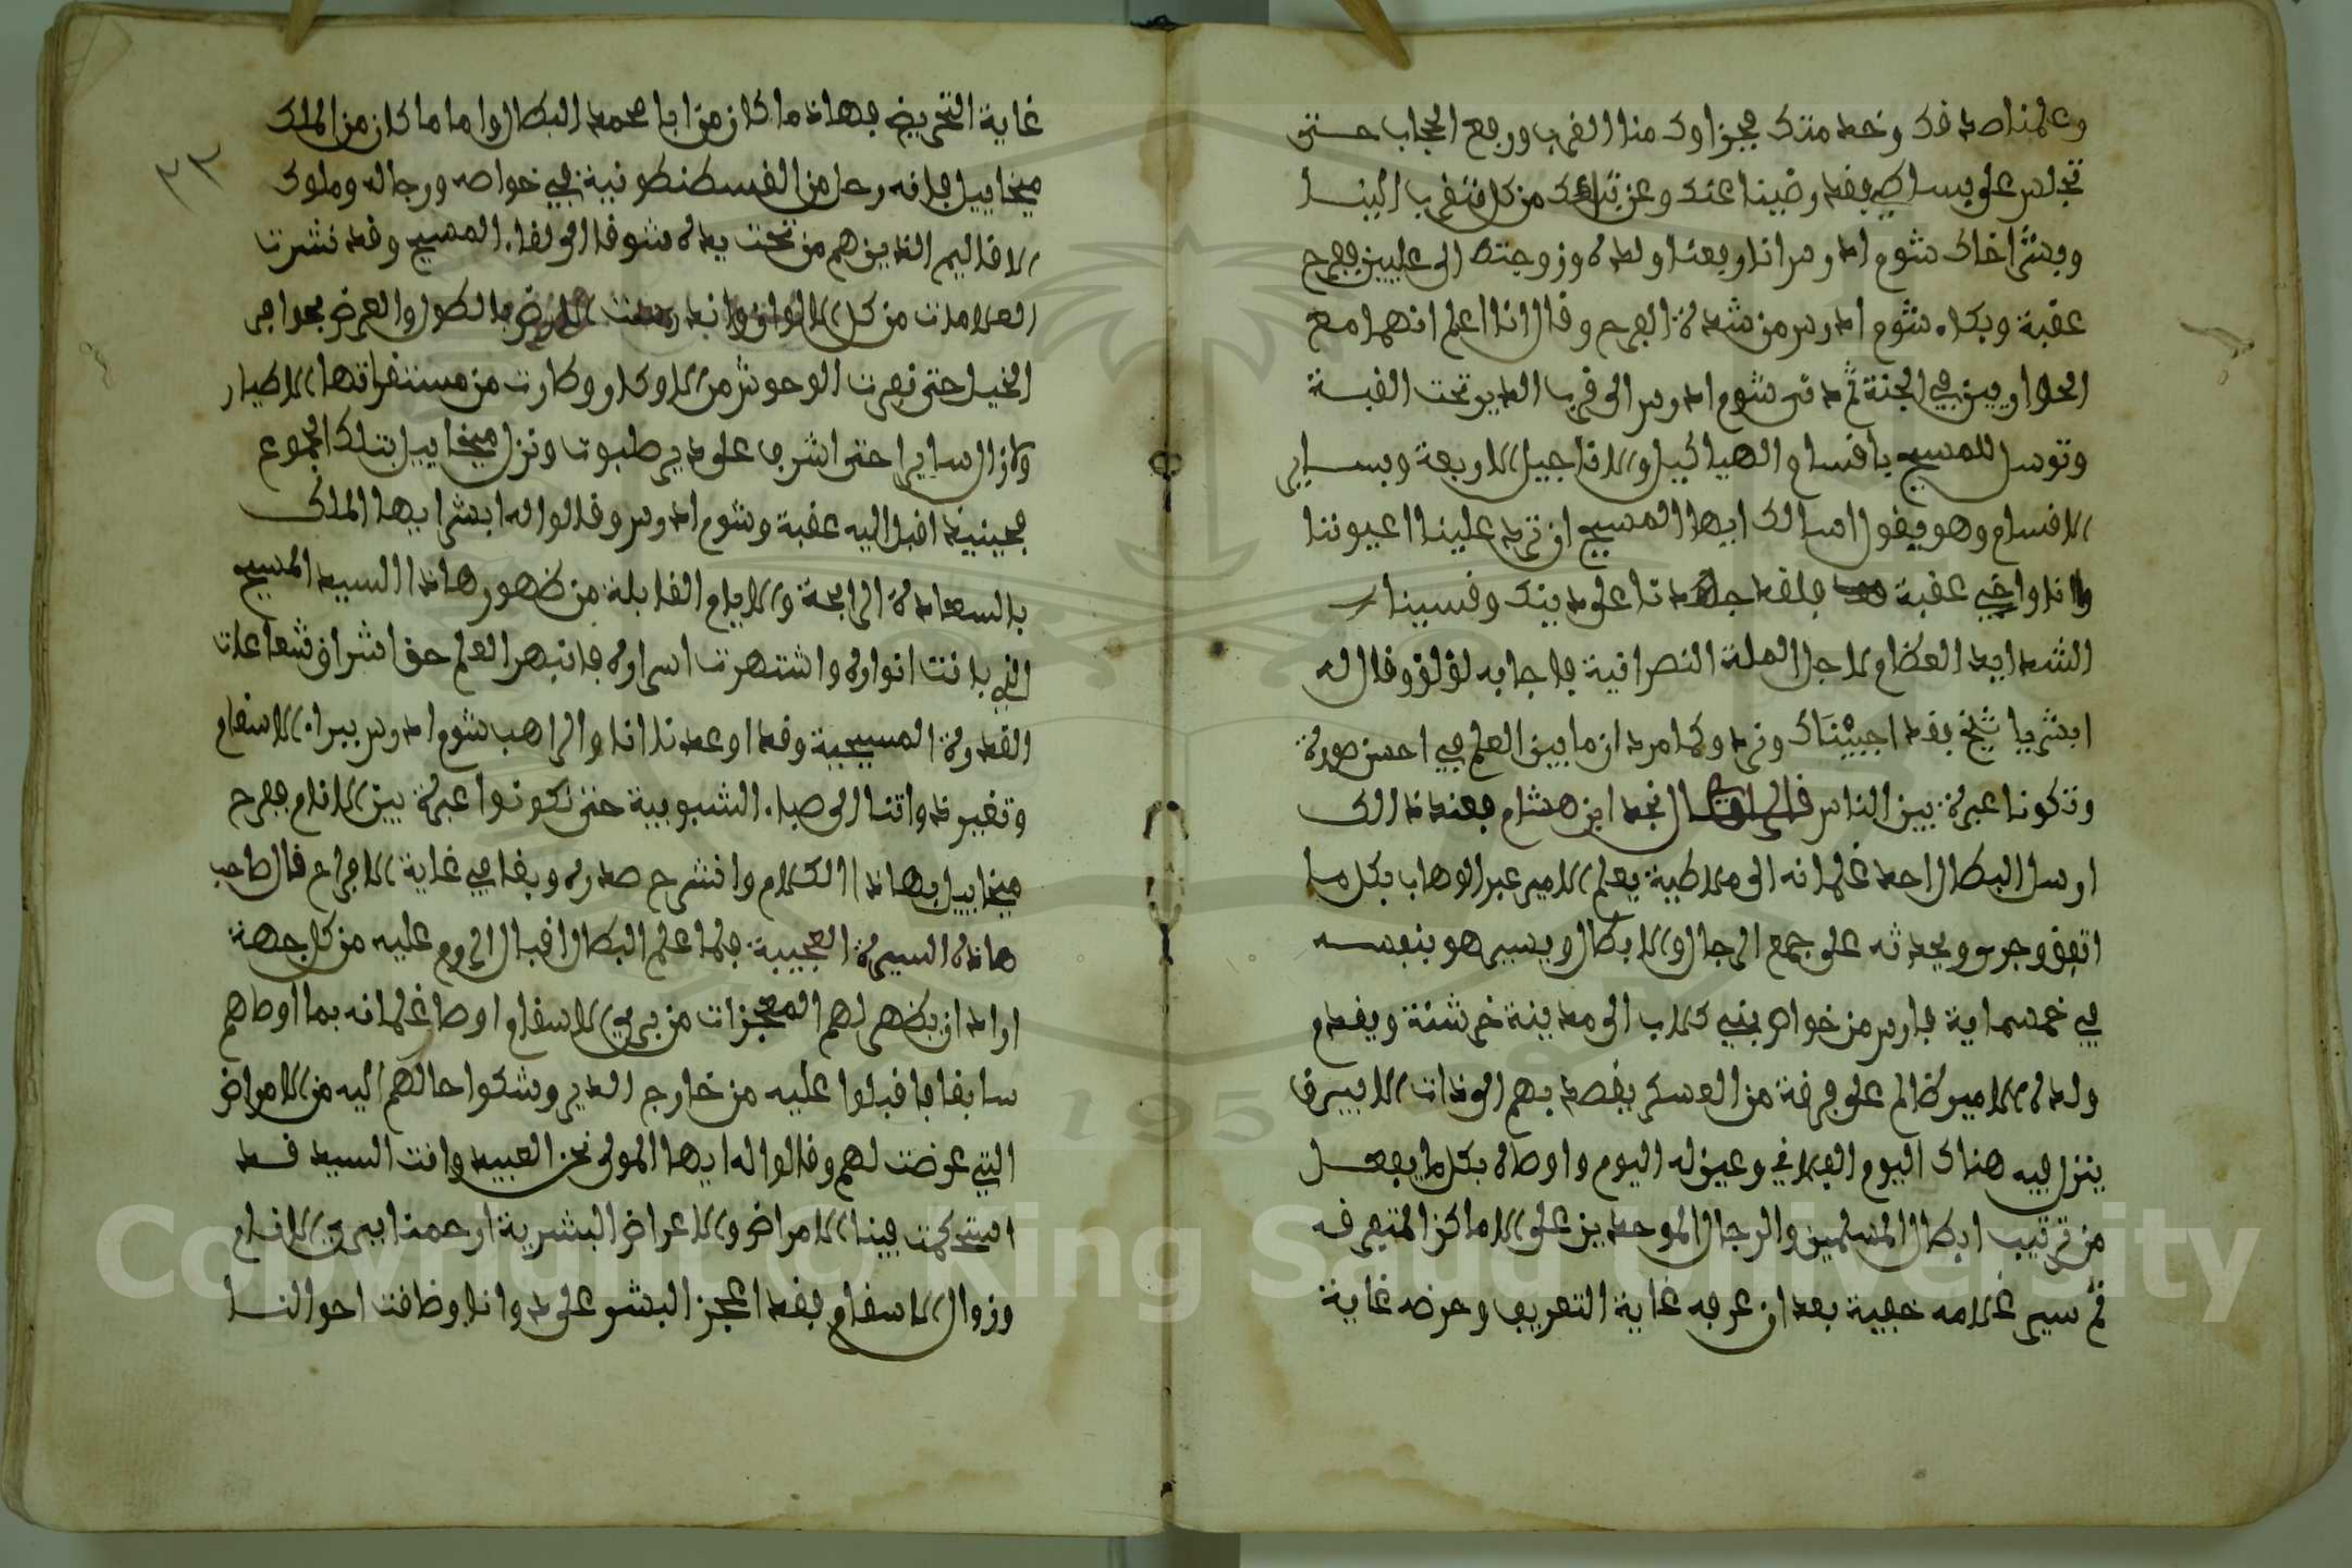 وعلمنا صدفك وخدمتك فجزاوك منا القرب ورفع الحجاب حتى
تجلس على بساطي فقد رضينا عنك وعن تباعك من كل متقرب الينا
وبشر اخاك شوم ادرس اننا رفعنا ولده وزوجته الى عليين ففرح
عقبة وبكاء شوم ادرس من شدة الفرح وقال انا اعلم انهما مع
الحواريين في الجنة ثم دنى شوم ادرس الى قرب الدير تحت القبة
وتوسل للمسيح باقسام الهياكيل والاناجيل الاربعة وبساير
الاقسام وهو يقول اسالك ايها المسيح ان ترد علينا اعيوننا
وانا واخي عقبة فلقد جاهدنا على دينك وقسينا
الشدايد العظام لاجل الملة النصرانية فاجابه لؤلؤ وقال له
ابشر يا شيخ فقد اجبيناك ونردوكما مردان ما بين العلم في احسن صورة
وتكونا عبرة بين الناس قال نجد ابن هشام فعند ذالك
ارسل البطال احد غلمانه الى ملاطية يعلم الامير عبد الوهاب بكل ما
اتفق وجرى ويحدثه على جمع الرجال والابطال ويسير هو بنفسه
في خمسماية فارس من خواص بني كلاب الى مدينة خرشنة ويقدم
ولده الامير ظالم على فرقة من العسكر يقصد بهم الى ذات الابيرق
ينزل فيه هناك اليوم الفلاني وعين له اليوم واوصاه بكل ما يفعل
من ترتيب ابطال المسلمين والرجال الموحدين على الاماكن المتفرقة
ثم سير غلامه خفية بعد ان عرفه غاية التعريف وحرضه غاية
غاية التحريض فهاذا ما كان من ابا محمد البطال واما ما كان من الملك
ميخاييل فانه رحل من القسطنطونية في خواصه ورجاله وملوك
الاقاليم الذين هم من تحت يده شوقا الى لقاء المسيح وقد نشرت
العلامات من كل الالوان وانسدت الارض بالطول والعرض بحوافر
الخيل حتى نفرت الوحوش من الاوكار وطارت من مستقراتها الاطيار
ولازال سايرا حتى اشرف على دير طبوت ونزل ميخاييل بتلك الجموع
فحينيذ اقبل اليه عقبة وشوم ادرس وقالوا له ابشر ايها الملك
بالسعادة الرابحة والايام القابلة من ظهور هاذا السيد المسيح
الذي بانت انواره واشتهرت اسراره فانبهر العلم حق اشراق شعاعات
القدرة المسيحية وقد اوعدنا انا والراهب شوم ادرس ببراء الاسقام
وتغيير ذواتنا الى صباء الشبوبية حتى نكونوا عبرة بين الانام ففرح
ميخاييل بهاذا الكلام وانشرح صدره وبقا في غاية الافراح قال صاحب
هاذه السيرة العجيبة فلما علم البطال اقبال الروم عليه من كل جهة
اراد ان يظهر لهم المعجزات من بري الاسقام اوصا غلمانه بما اوصاهم
سابقا فاقبلوا عليه من خارج الدير وشكوا حالهم اليه من الامراض
التي عرضت لهم وقالوا له ايها المولى نحن العبيد وانت السيد قد
استحكمت فينا الامراض والاعراض البشرية ارحمنا ايبري الانام
وزوال الاسقام فقد اعجز البشر على دوانا وضاقت احوالنا
٣٣